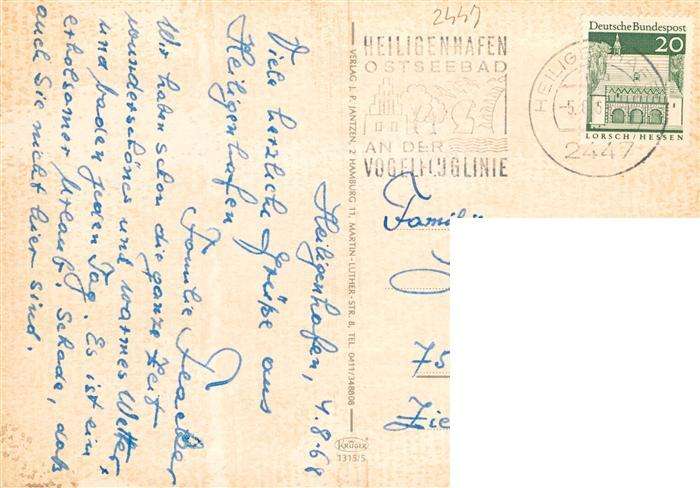 2447
HEILIGENHAFEN
OSTSEEBAD
AN DER
VOGELFLUGLINIE
Deutsche Bundespost
20
LORSCH/HESSEN
2447
Heiligenhafen, 4.8.68
Viele herzliche Grüße aus
Heiligenhafen
Familie
Wir haben schon die ganze Zeit
wunderschönes und warmes Wetter
und baden jeden Tag. Es ist ein
erholsamer Urlaub. Schade, daß
auch Sie nicht hier sind.
VERLAG J. P. JANTZEN, 2 HAMBURG 11, MARTIN-LUTHER-STR. 8, TEL. 0411/348808
KRÜGER
1315/5
Familie
75
Zie